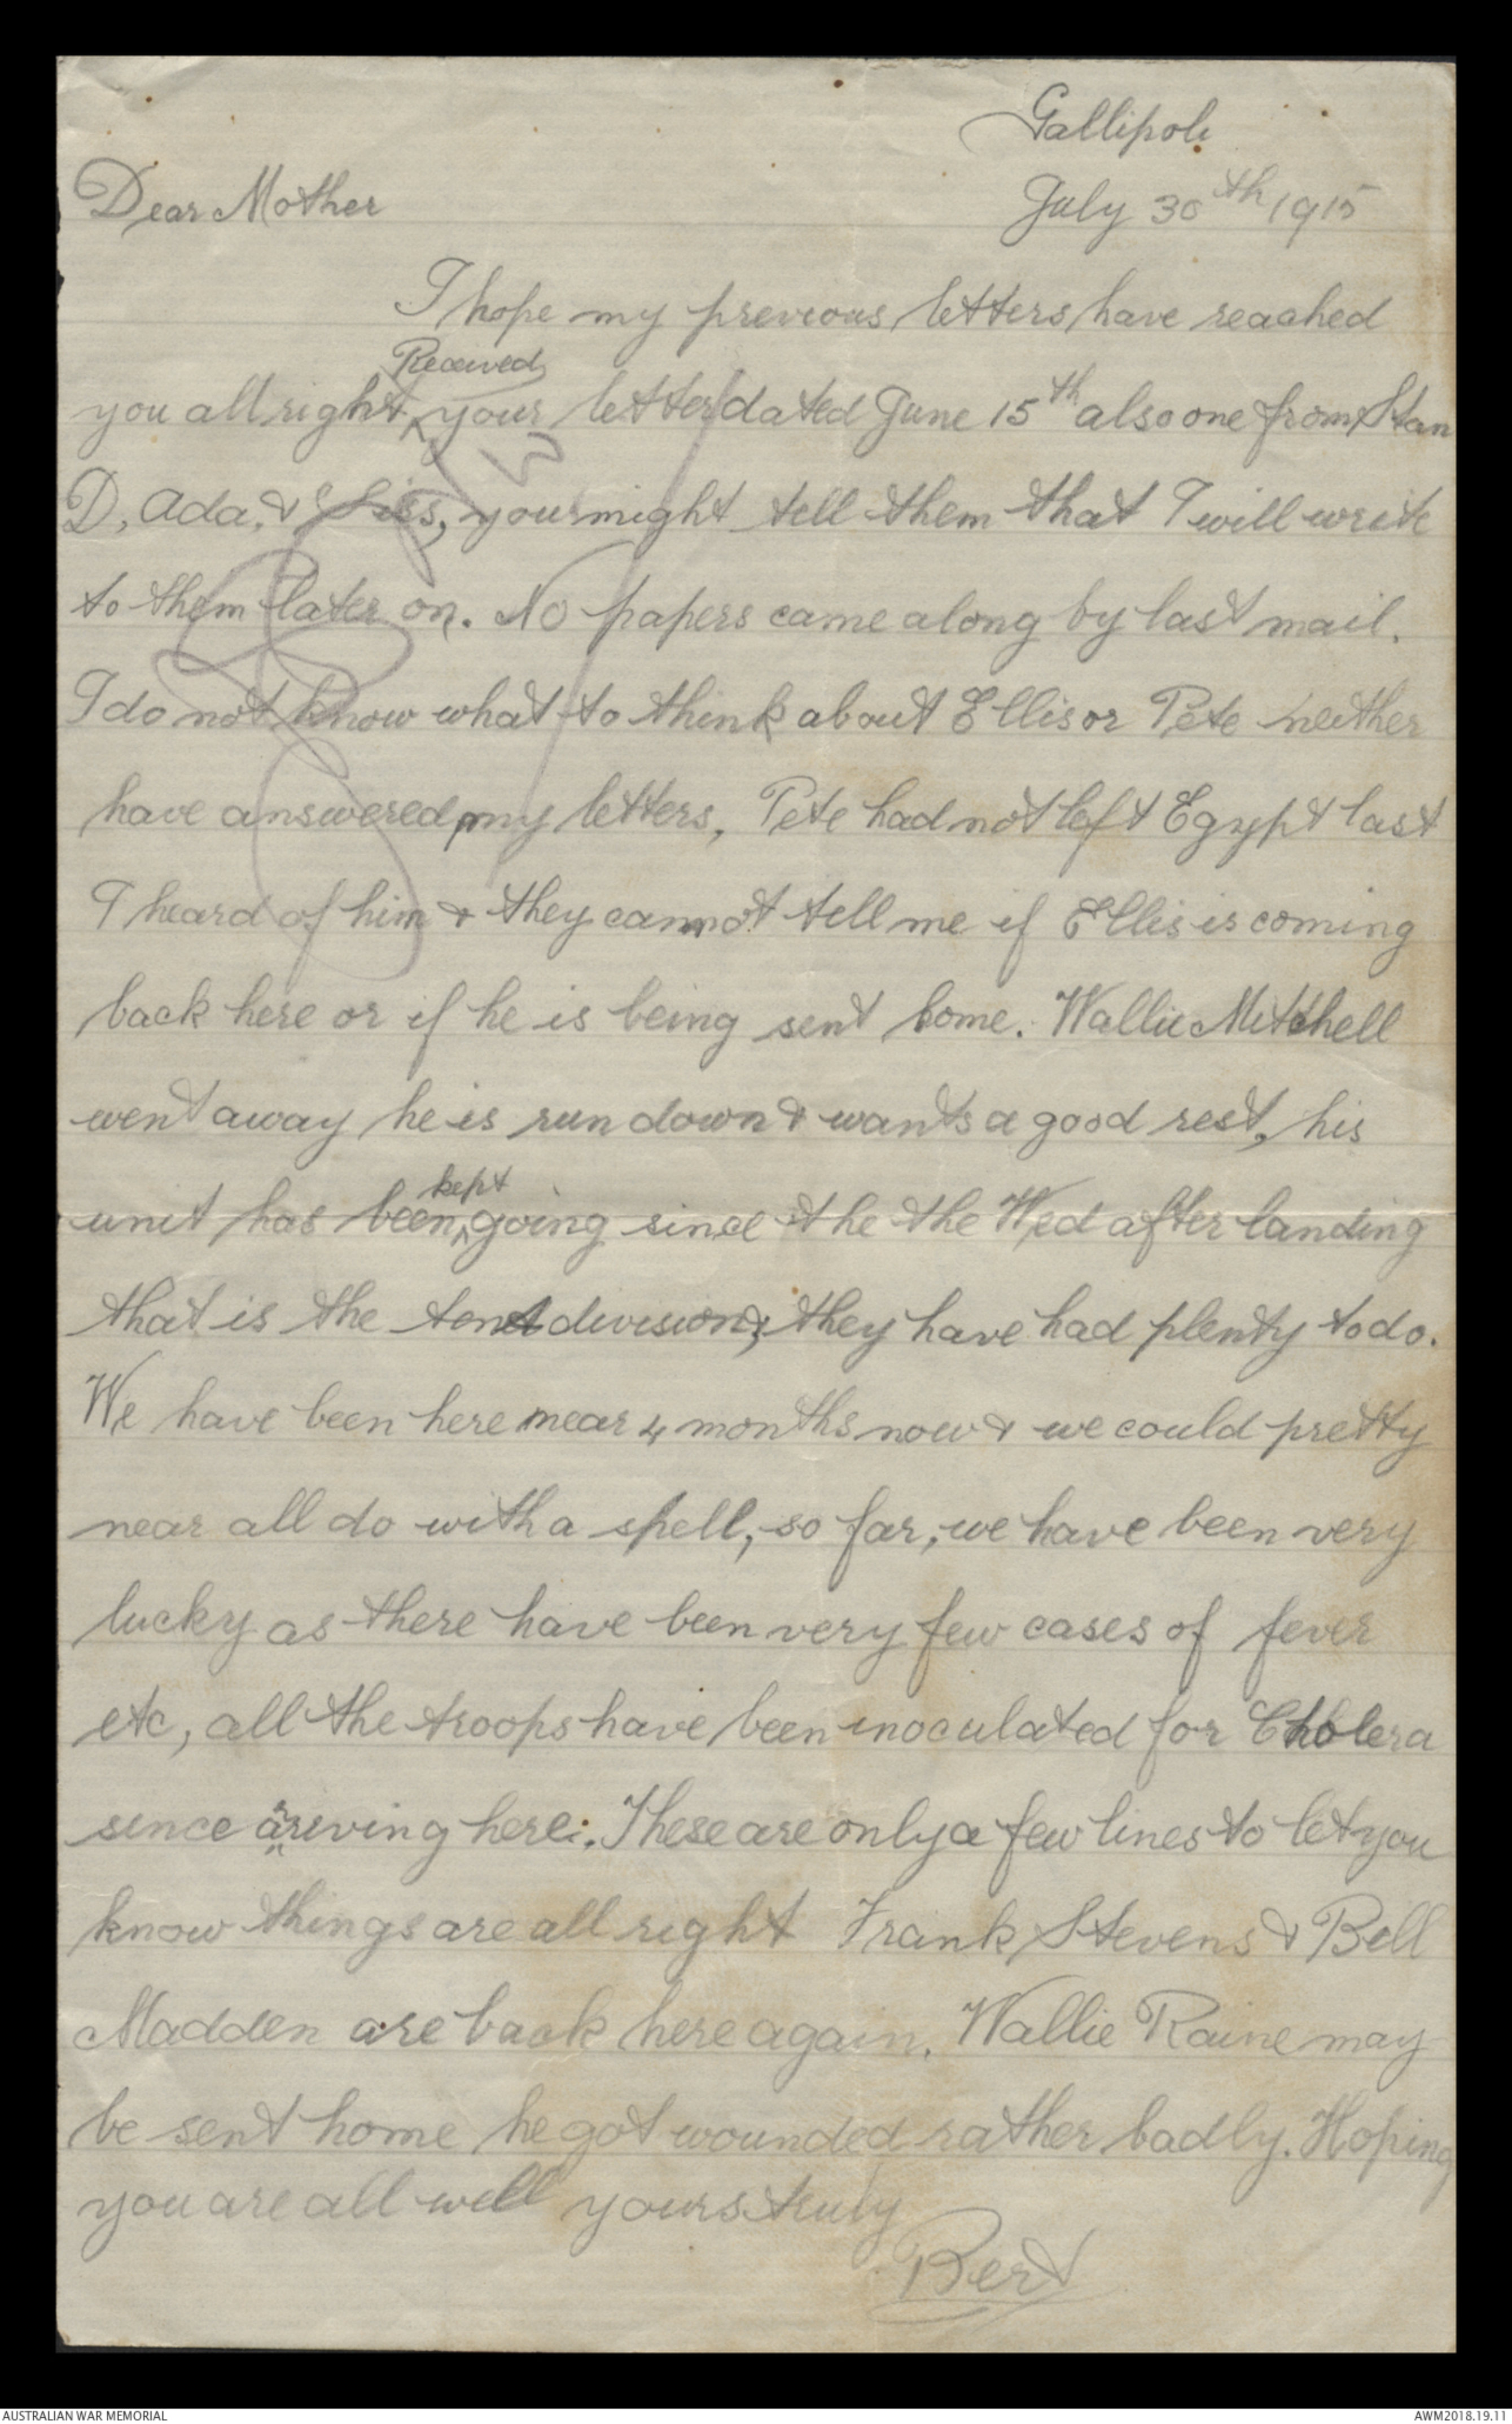 Gallipoli
Dear Mother
July 30th 1915
I hope my previous letters have reached
Received
you all right, ^ your letter dated June 15th also one from Stan
D, Ada, & Siss, you might tell them that I will write
to them later on. No papers came along by last mail.
I do not know what to think about Ellis or Pete neither
have answered my letters, Pete had not left Egypt last
I heard of him & they cannot tell me if Ellis is coming
back here or if he is being sent home. Wallie Mitchell
went away he is run down & wants a good rest, his
kept
unit has been ^ going since the the Wed after landing
that is the tent division, they have had plenty to do.
We have been here near 4 months now & we could pretty
near all do with a spell, so far, we have been very
lucky as there have been very few cases of fever
etc, all the troops have been inoculated for Cholera
since arriving here. These are only a few lines to let you
know things are all right Frank Stevens & Bill
Madden are back here again. Wallie Raine may
be sent home he got wounded rather badly. Hoping
you are all well yours truly
Bert
AUSTRALIAN WAR MEMORIAL
AWM2018.19.11